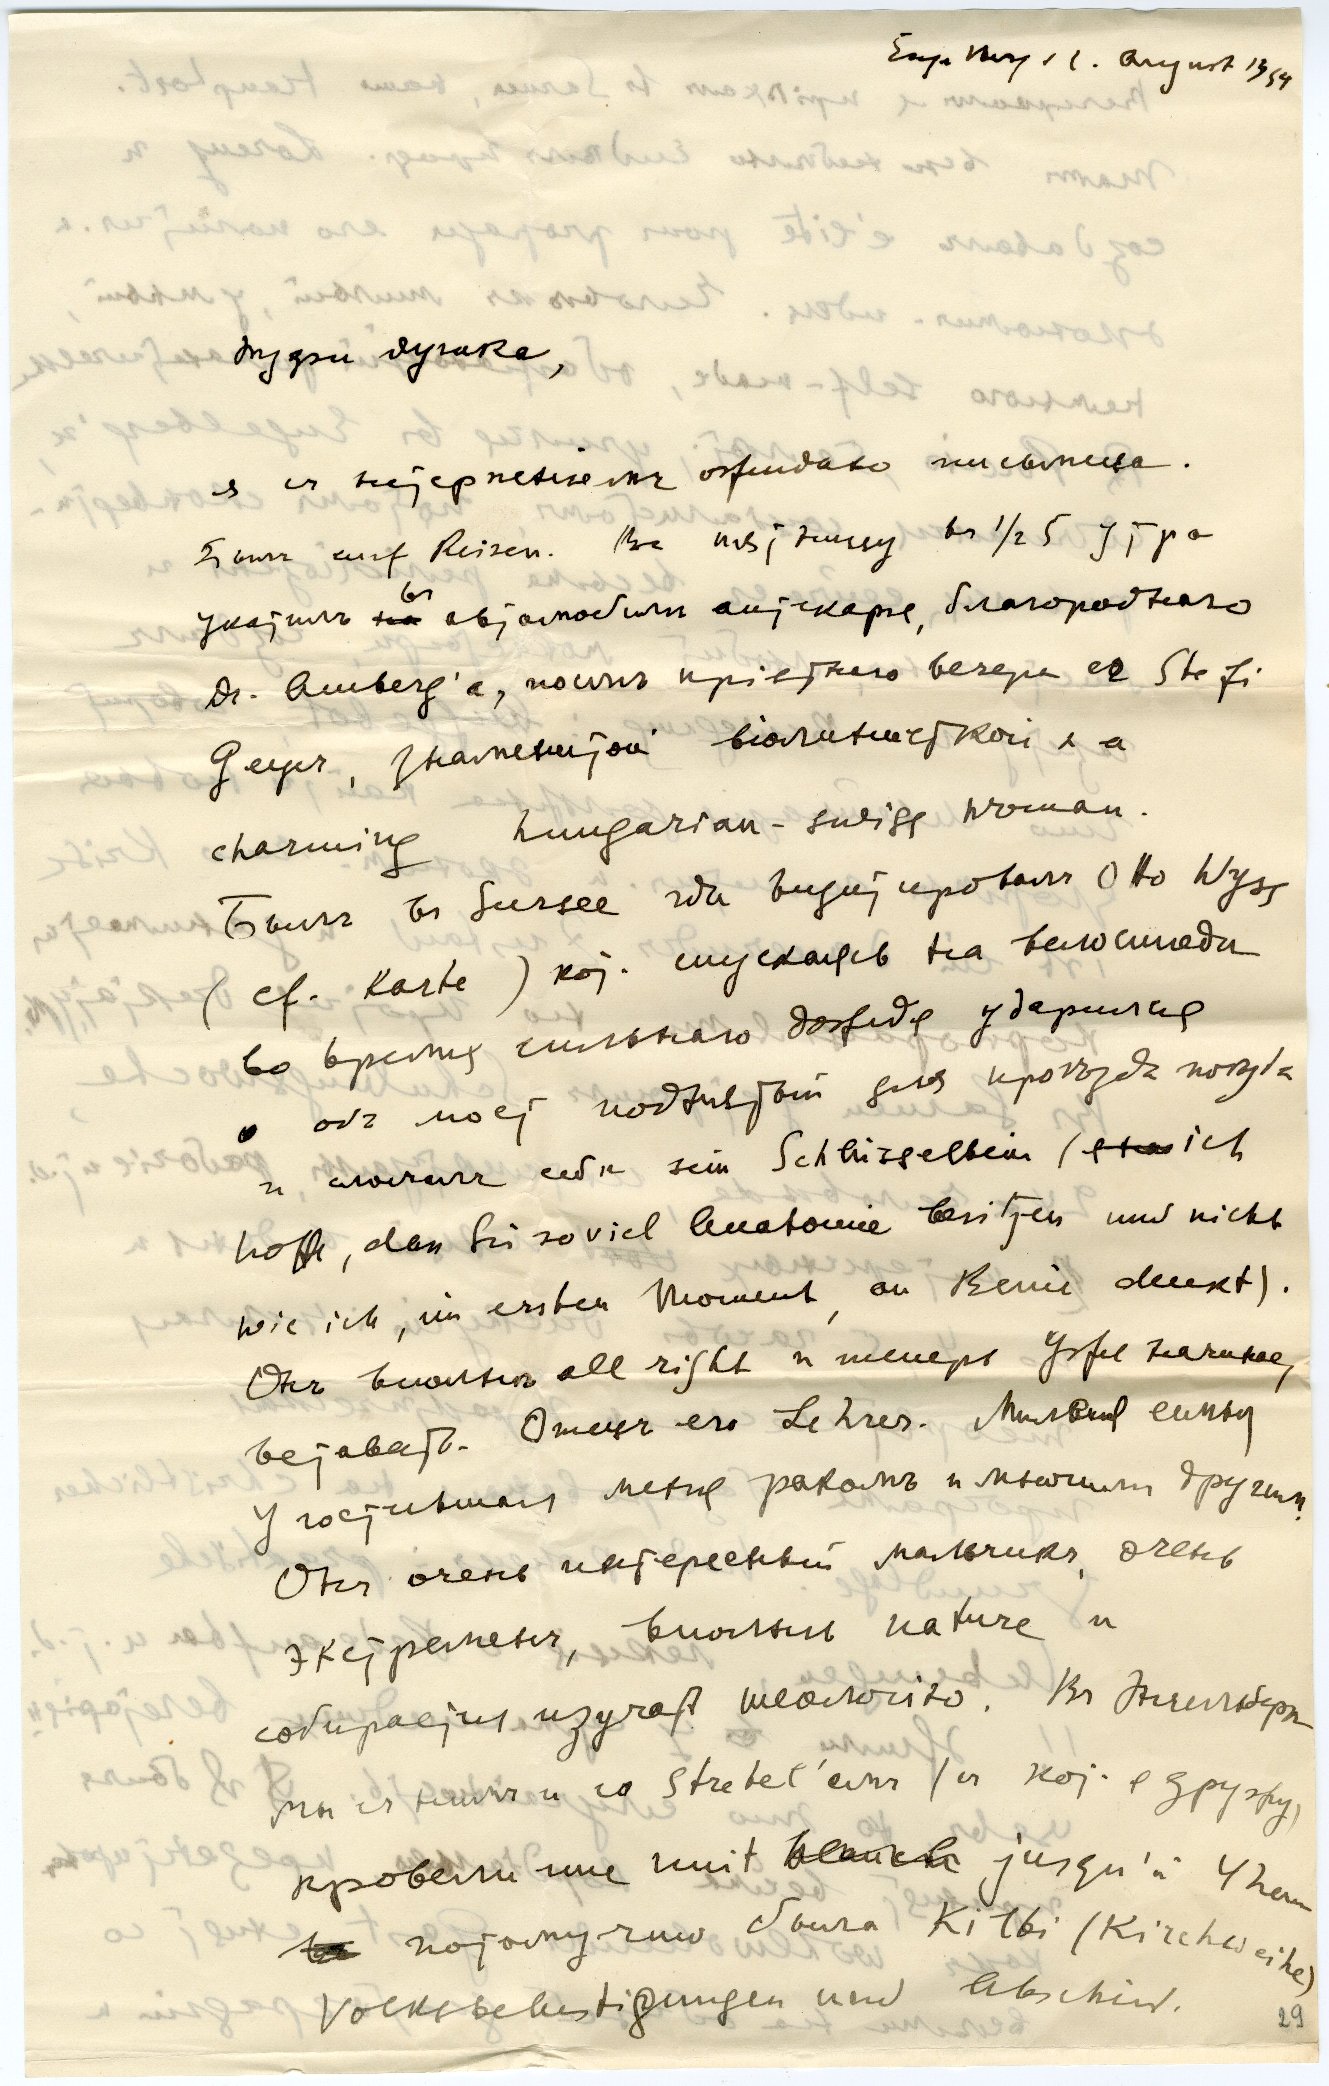 11. August 1934
Мудзи дузика,
я съ нетерпенiемъ ожидаю письмеца.
Былъ auf Reisen. Въ пятницу въ 1/2 5 утра
укатилъ въ автомобилѣ аптекаря, благороднаго
Dr. Amberg'а, послѣ прiятнаго вечера со Stefi
Geyer, знаменитой вiолинисткой & a
charming hungarian-swiss woman.
Былъ въ Sursee гдѣ визитировалъ Otto Wyss
(cf. Karte) кот. спускаясь на велосипедѣ
во время сильнаго дождя ударился
объ мост поднятый для проѣзда поѣзда
и сломалъ себѣ sein Schlüsselbein (ich
hoffe, dass Sie soviel Anatomie besitzen und nicht
wie ich, im ersten Moment, an Beine denkt).
Онъ вполнѣ all right и теперь уже начинает
вставать. Отецъ его Lehrer. Милая семья
угостившая меня ракомъ и многимъ другимъ.
Онъ очень интересный мальчикъ, очень
экстременъ, вполнѣ nature и
собирается изучать теологiю. Въ Энгельбергѣ
мы съ нимъ и со Strebel'емъ (съ кот. я дружу)
провели une nuit blanche jusqu'à 4 heures
потому что была Kilbi (Kirchweihe)
Volksbelustigungen und Abschied.
29